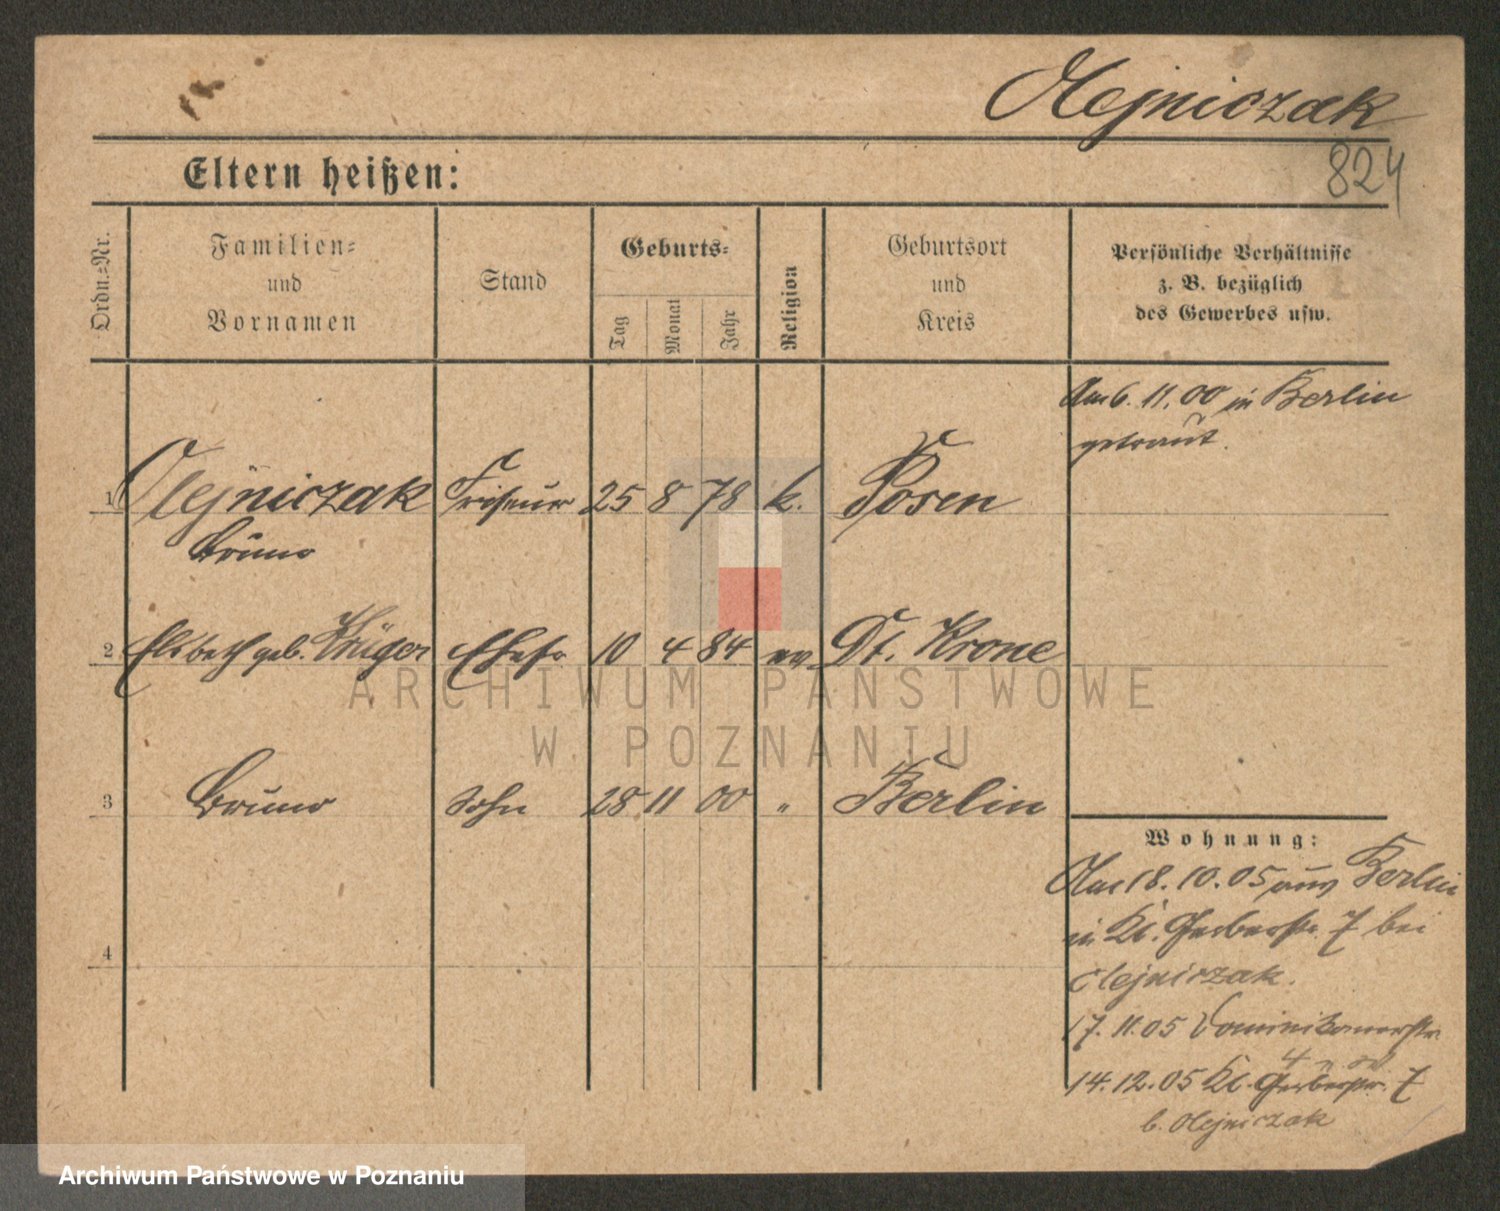 Olejniczak
824
Eltern heißen:
Ordn.-Nr.
Familien-
und
Vornamen
Stand
Geburts-
Tag
Monat
Jahr
Religion
Geburtsort
und
Kreis
Persönliche Verhältnisse
z. B. bezüglich
des Gewerbes usw.
Am 6. 11. 00 in Berlin
getraut.
1 Olejniczak Friseur 25 8 78 k. Posen
Bruno
2 Elsbeth geb. Krüger Ehefr 10 4 84 ev. Dt. Krone
ARCHIWUM PAŃSTWOWE
W POZNANIU
3 Bruno Sohn 28 11 00 " Berlin
Wohnung:
Am 18. 10. 05 aus Berlin
in Kl. Gerberstr. 7 bei
Olejniczak.
4
17. 11. 05 Dominikanerstr.
4
14. 12. 05 Kl. Gerberstr. 7
b. Olejniczak
Archiwum Państwowe w Poznaniu